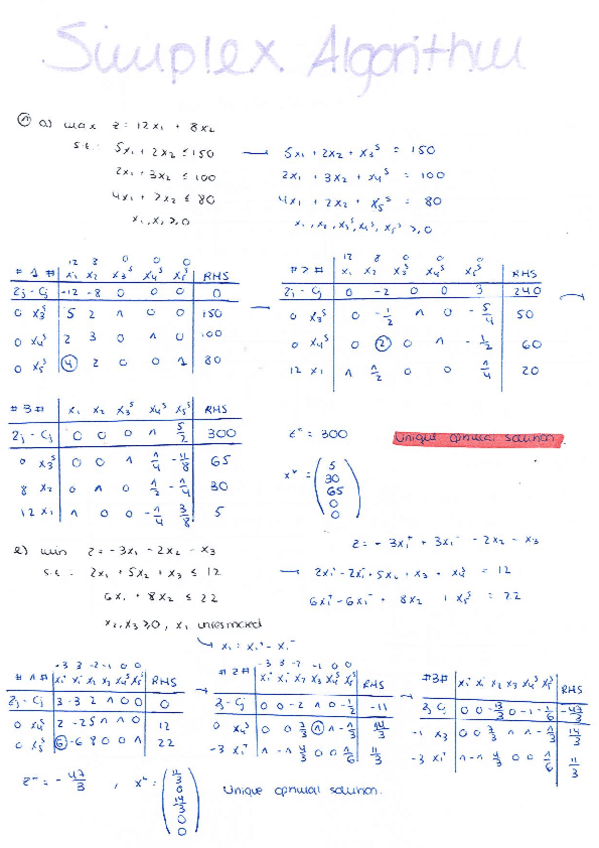 Simplex Algorithm
① a) max z = 12x₁ + 8x₂
s.t. 5x₁ + 2x₂ ≤ 150 → 5x₁ + 2x₂ + x₃ˢ = 150
2x₁ + 3x₂ ≤ 100 2x₁ + 3x₂ + x₄ˢ = 100
4x₁ + 2x₂ ≤ 80 4x₁ + 2x₂ + x₅ˢ = 80
x₁, x₂ ≥ 0 x₁, x₂, x₃ˢ, x₄ˢ, x₅ˢ ≥ 0
12 8 0 0 0
# 1 # x₁ x₂ x₃ˢ x₄ˢ x₅ˢ RHS
zj - cj -12 -8 0 0 0 0
0 x₃ˢ 5 2 1 0 0 150
0 x₄ˢ 2 3 0 1 0 100
0 x₅ˢ 4 2 0 0 1 80
12 8 0 0 0
# 2 # x₁ x₂ x₃ˢ x₄ˢ x₅ˢ RHS
zj - cj 0 -2 0 0 3 240
0 x₃ˢ 0 -1/2 1 0 -5/4 50
0 x₄ˢ 0 2 0 1 -1/2 60
12 x₁ 1 1/2 0 0 1/4 20
# 3 # x₁ x₂ x₃ˢ x₄ˢ x₅ˢ RHS
zj - cj 0 0 0 1 5/2 300
0 x₃ˢ 0 0 1 1/4 -11/8 65
8 x₂ 0 1 0 1/2 -1/4 30
12 x₁ 1 0 0 -1/4 3/8 5
z* = 300 unique optimal solution
x* = (5 30 65 0 0)
e) min z = -3x₁ - 2x₂ - x₃ z = -3x₁⁺ + 3x₁⁻ - 2x₂ - x₃
s.t. 2x₁ + 5x₂ + x₃ ≤ 12 → 2x₁⁺ - 2x₁⁻ + 5x₂ + x₃ + x₄ˢ = 12
6x₁ + 8x₂ ≤ 22 6x₁⁺ - 6x₁⁻ + 8x₂ + x₅ˢ = 22
x₂, x₃ ≥ 0, x₁ unrestricted
x₁ = x₁⁺ - x₁⁻
-3 3 -2 -1 0 0
# 1 # x₁⁺ x₁⁻ x₂ x₃ x₄ˢ x₅ˢ RHS
zj - cj 3 -3 2 1 0 0 0
0 x₄ˢ 2 -2 5 1 1 0 12
0 x₅ˢ 6 -6 8 0 0 1 22
-3 3 -2 -1 0 0
# 2 # x₁⁺ x₁⁻ x₂ x₃ x₄ˢ x₅ˢ RHS
zj - cj 0 0 -2 1 0 -1/2 -11
0 x₄ˢ 0 0 7/3 1 1 -1/3 14/3
-3 x₁⁺ 1 -1 4/3 0 0 1/6 11/3
#3# x₁⁺ x₁⁻ x₂ x₃ x₄ˢ x₅ˢ RHS
zj - cj 0 0 -13/3 0 -1 -1/6 -47/3
-1 x₃ 0 0 7/3 1 1 -1/3 14/3
-3 x₁⁺ 1 -1 4/3 0 0 1/6 11/3
z* = -47/3 , x* = (11/3 0 14/3 0 0) unique optimal solution.